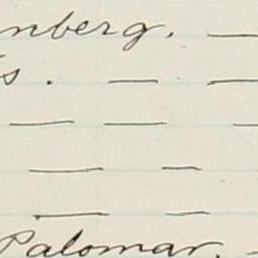 nberg. —
s. — —
— — —
— —
— —
Palomar. -